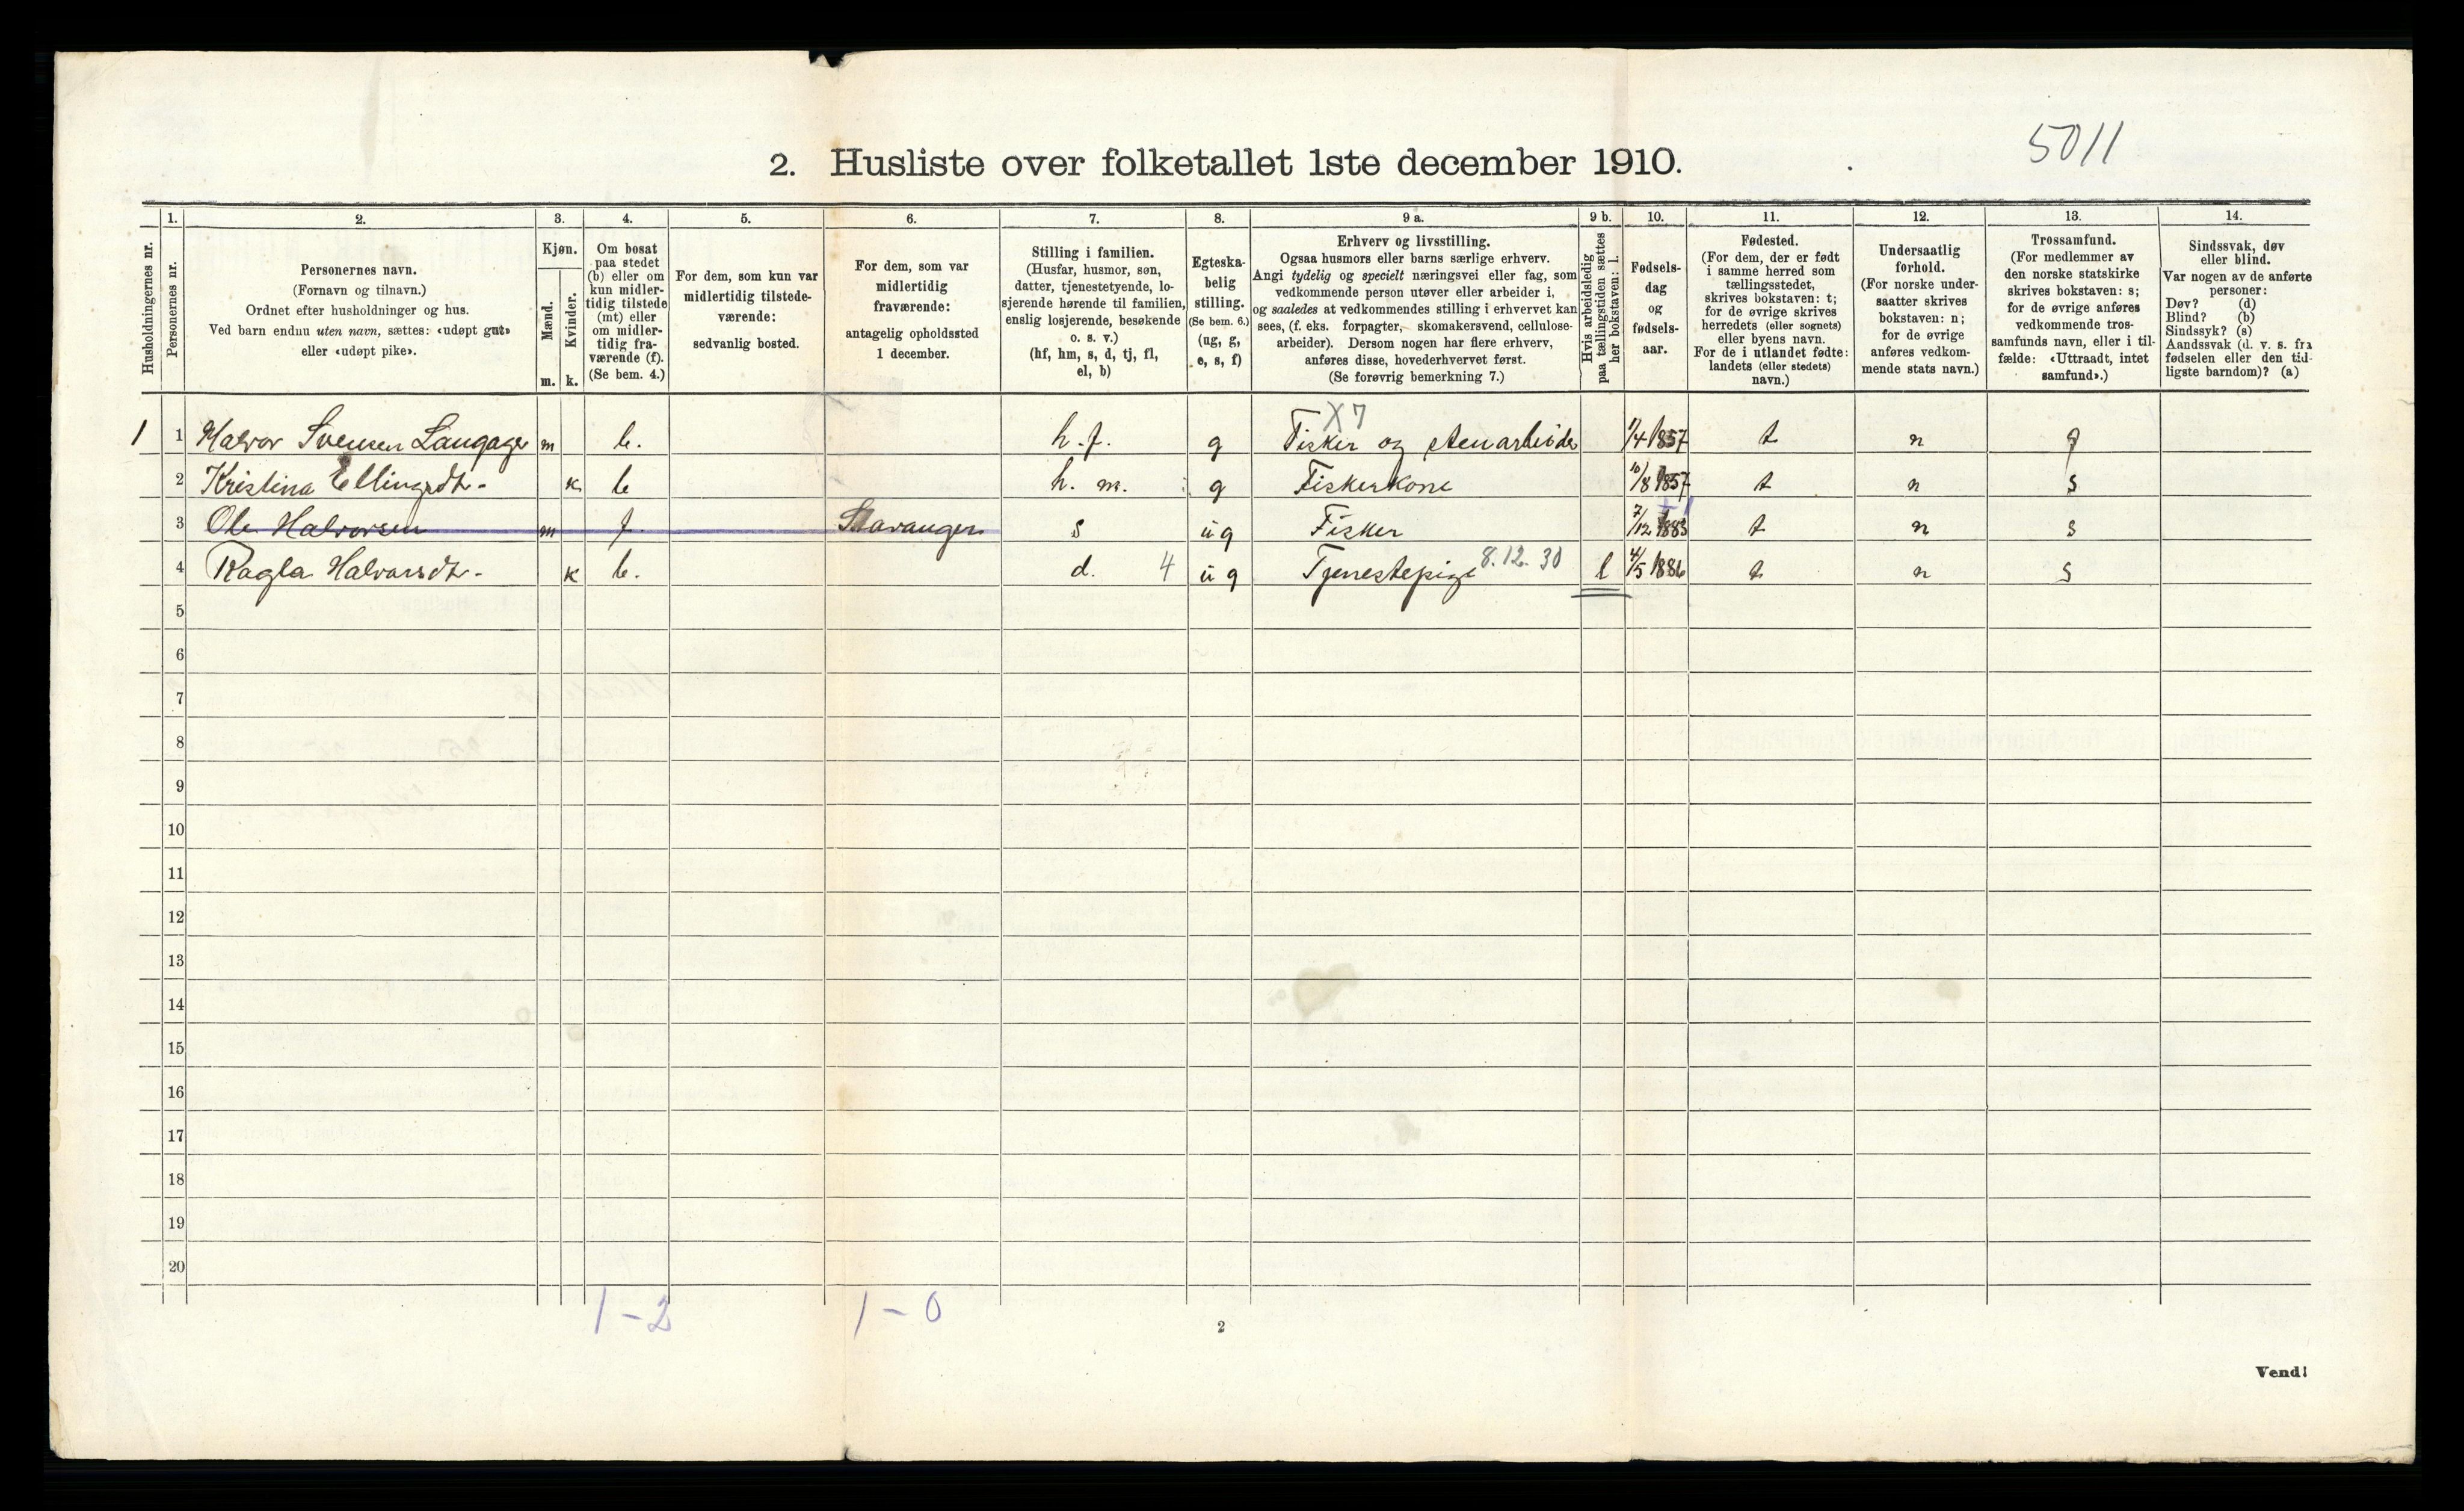 2. Husliste over folketallet 1ste december 1910.
5011
Husholdningernes nr.
1.
Personernes nr.
2.
Personernes navn.
(Fornavn og tilnavn.)
Ordnet efter husholdninger og hus.
Ved barn endnu uten navn, sættes: «udøpt gut»
eller «udøpt pike».
3.
Kjøn.
Mænd.
m.
Kvinder.
k.
4.
Om bosat
paa stedet
(b) eller om
kun midler-
tidig tilstede
(mt) eller
om midler-
tidig fra-
værende (f).
(Se bem. 4.)
5.
For dem, som kun var
midlertidig tilstede-
værende:
sedvanlig bosted.
6.
For dem, som var
midlertidig
fraværende:
antagelig opholdssted
1 december.
7.
Stilling i familien.
(Husfar, husmor, søn,
datter, tjenestetyende, lo-
sjerende hørende til familien,
enslig losjerende, besøkende
o. s. v.)
(hf, hm, s, d, tj, fl,
el, b)
8.
Egteska-
belig
stilling.
(Se bem. 6.)
(ug, g,
e, s, f)
9 a.
Erhverv og livsstilling.
Ogsaa husmors eller barns særlige erhverv.
Angi tydelig og specielt næringsvei eller fag, som
vedkommende person utøver eller arbeider i,
og saaledes at vedkommendes stilling i erhvervet kan
sees, (f. eks. forpagter, skomakersvend, cellulose-
arbeider). Dersom nogen har flere erhverv,
anføres disse, hovederhvervet først.
(Se forøvrig bemerkning 7.)
9 b.
Hvis arbeidsledig
paa tællingstiden sættes
her bokstaven: l.
10.
Fødsels-
dag
og
fødsels-
aar.
11.
Fødested.
(For dem, der er født
i samme herred som
tællingsstedet,
skrives bokstaven: t;
for de øvrige skrives
herredets (eller sognets)
eller byens navn.
For de i utlandet fødte:
landets (eller stedets)
navn.)
12.
Undersaatlig
forhold.
(For norske under-
saatter skrives
bokstaven: n;
for de øvrige
anføres vedkom-
mende stats navn.)
13.
Trossamfund.
(For medlemmer av
den norske statskirke
skrives bokstaven: s;
for de øvrige anføres
vedkommende tros-
samfunds navn, eller i til-
fælde: «Uttraadt, intet
samfund».)
14.
Sindssvak, døv
eller blind.
Var nogen av de anførte
personer:
Døv? (d)
Blind? (b)
Sindssyk? (s)
Aandssvak (d. v. s. fra
fødselen eller den tid-
ligste barndom)? (a)
X7
1 1 Halvor Svensen Langager m b. h.f. g Fisker og stenarbeide 1/4 1857 t n
2 Kristina Ellingsdt. k b h. m. g Fiskerkone 10/8 1857 t n s
3 Ole Halvorsen m f Stavanger s ug Fisker 7/12 1883 t n s
4 Ragla Halvarsdt. k b. d. 4 ug Tjenestepige 8.12.30 l 4/5 1886 t n s
5
6
7
8
9
10
11
12
13
14
15
16
17
18
19
20
1-2 1-0
2
Vend!